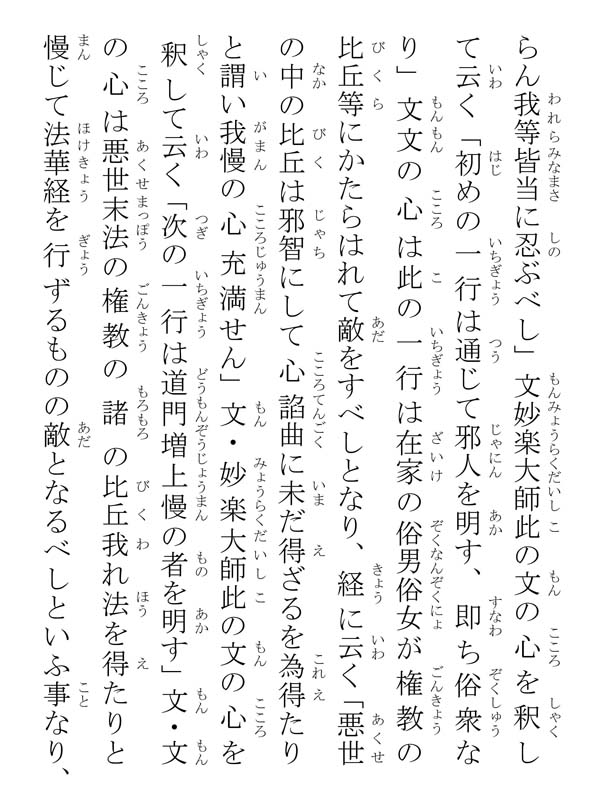 らん我等皆当に忍ぶべし」文妙楽大師此の文の心を釈し
て云く「初めの一行は通じて邪人を明す、即ち俗衆な
り」文文の心は此の一行は在家の俗男俗女が権教の
比丘等にかたらはれて敵をすべしとなり、経に云く「悪世
の中の比丘は邪智にして心諂曲に未だ得ざるを為得たり
と謂い我慢の心充満せん」文・妙楽大師此の文の心を
釈して云く「次の一行は道門増上慢の者を明す」文・文
の心は悪世末法の権教の諸の比丘我れ法を得たりと
慢じて法華経を行ずるものの敵となるべしといふ事なり、